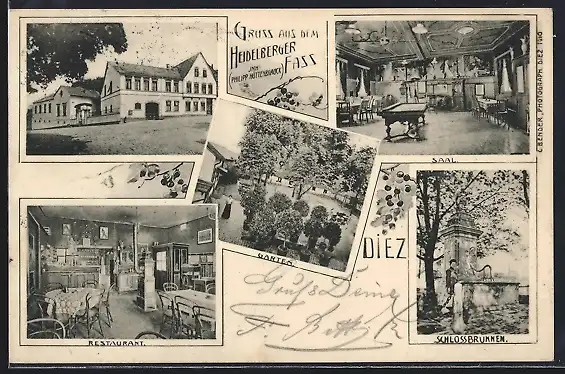 GRUSS AUS DEM
HEIDELBERGER
FASS
INH:
PHILIPP HÜTTENRAUCH
C. BENDER, PHOTOGRAPH. DIEZ 1910
SAAL.
GARTEN.
DIEZ
RESTAURANT.
SCHLOSSBRUNNEN.
Gruß Deine